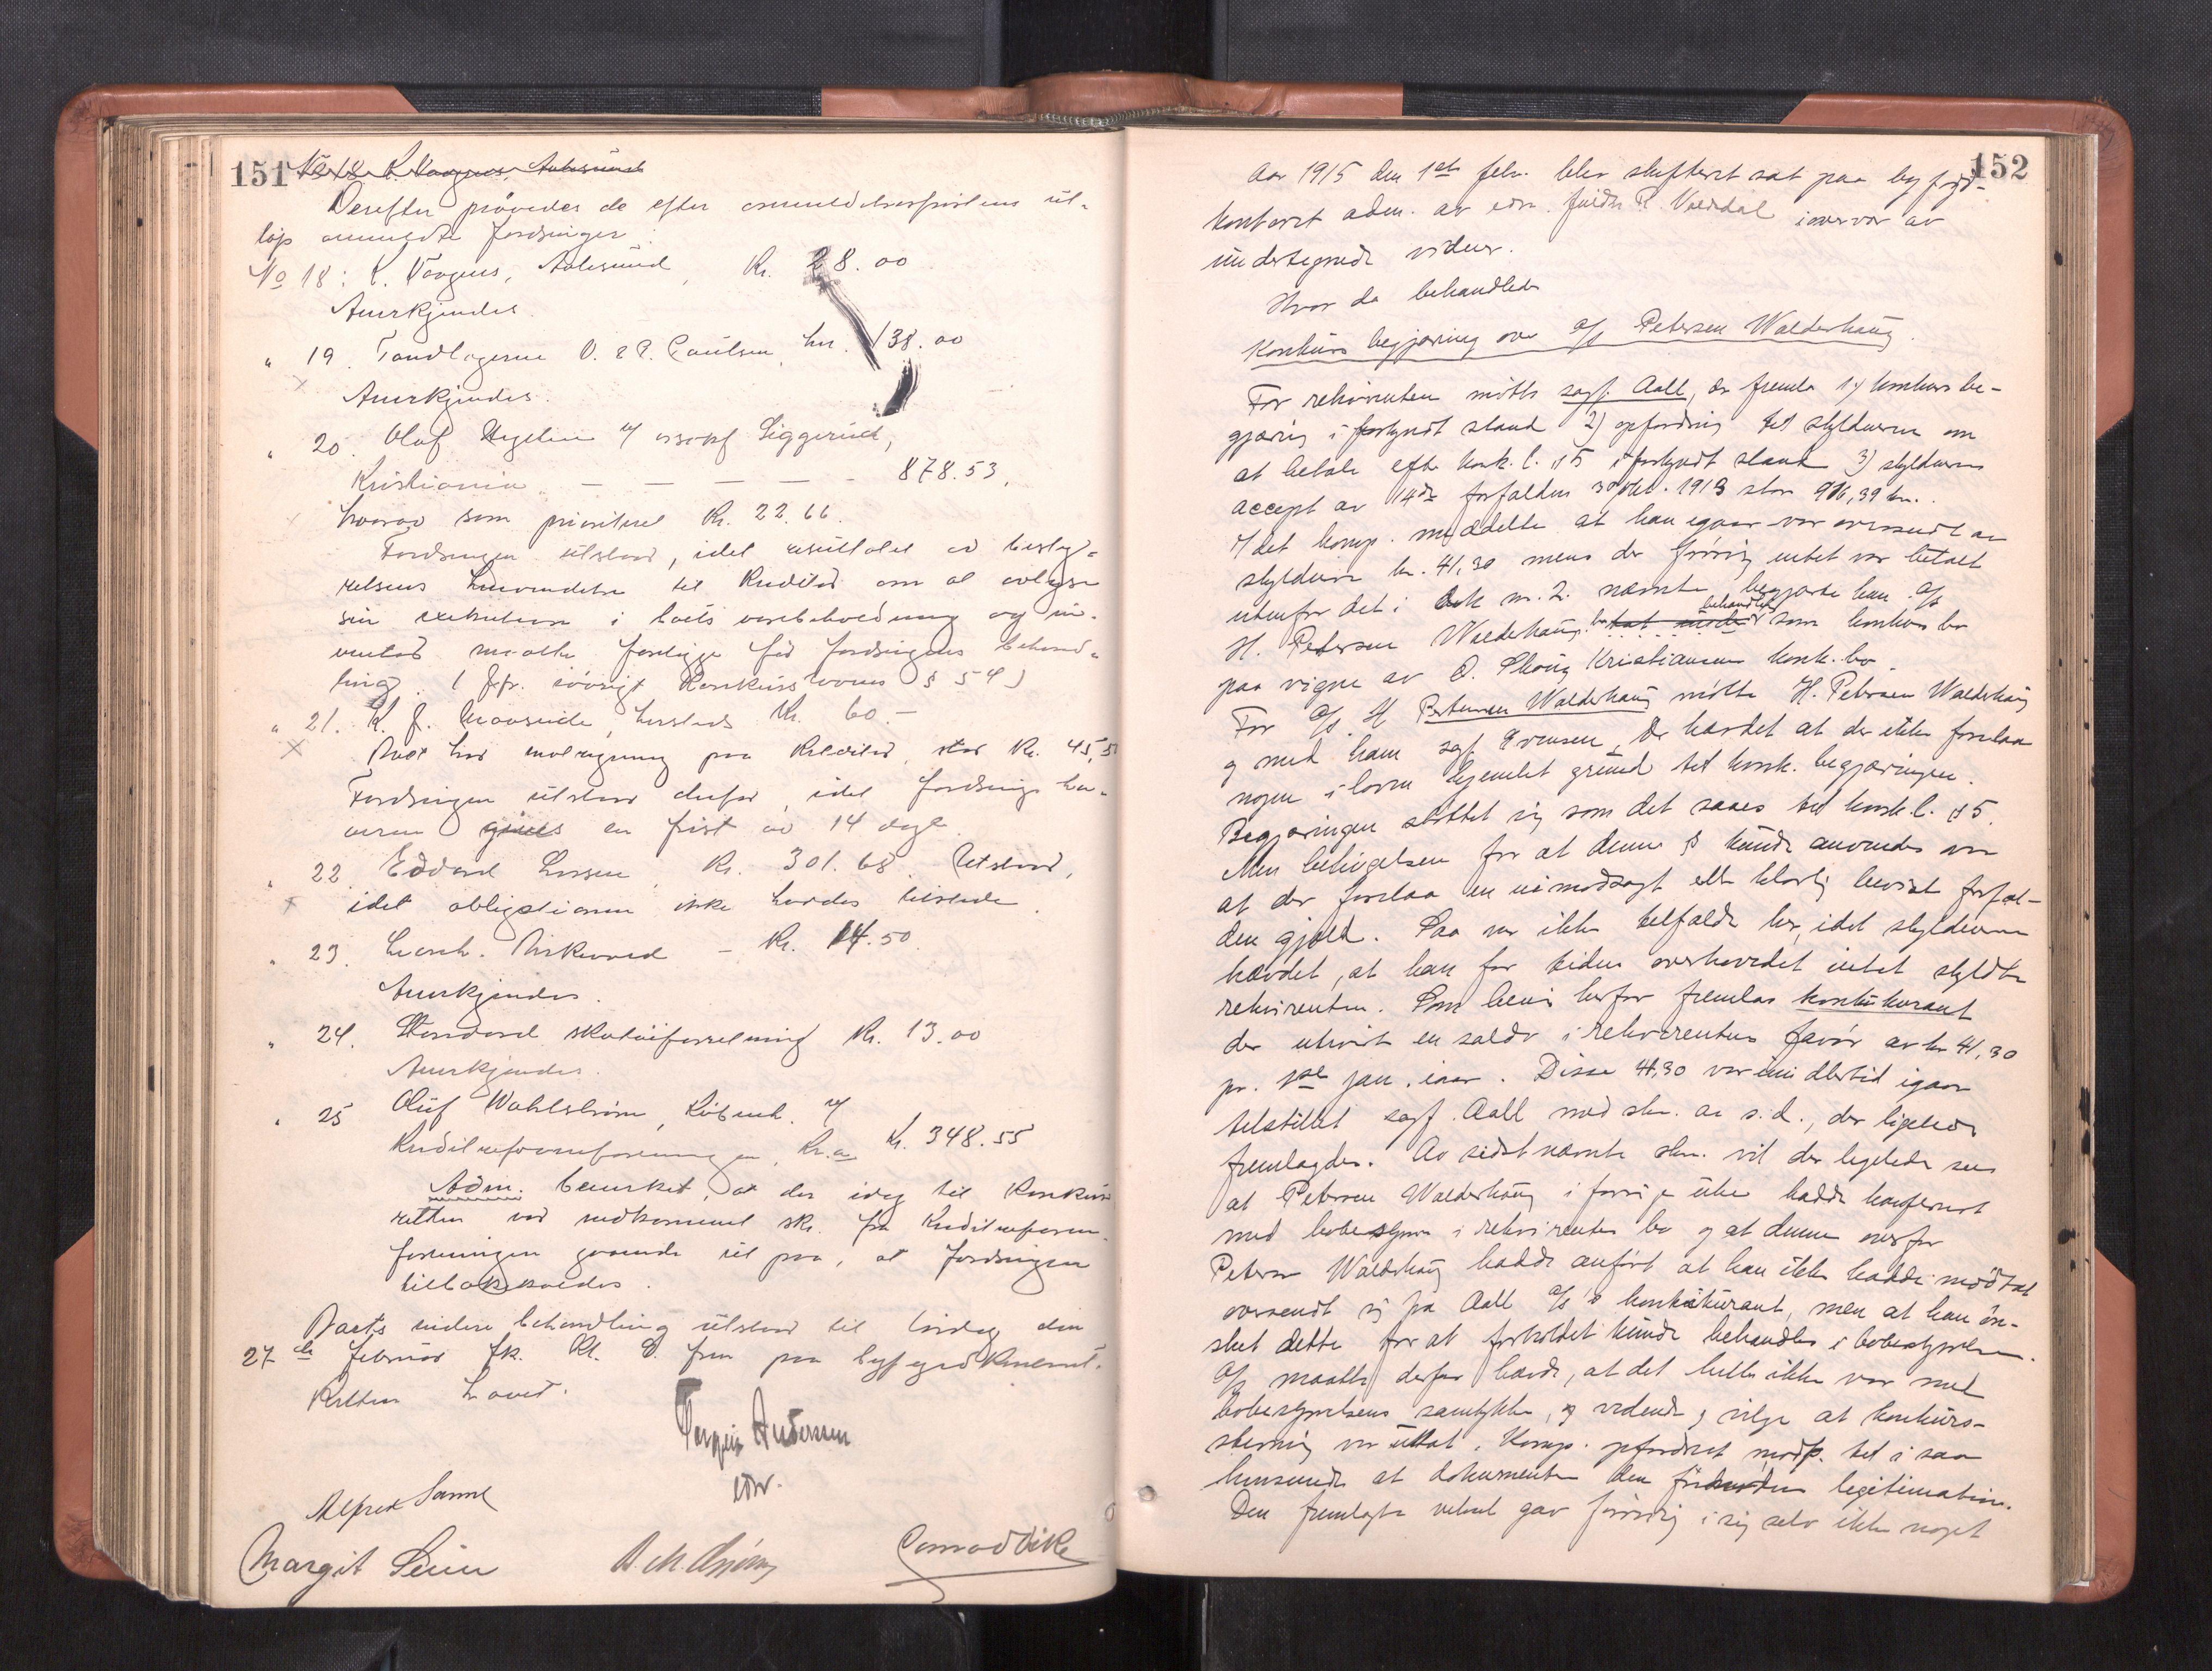 151 No 18 K. Vaagnes, Aalesund
Derefter prøvedes de efter anmeldelsesfristens ut-
løp anmeldte fordringer:
No 18: K. Vaagnes, Aalesund, Kr. 28.00
Anerkjendes.
" 19. Tandlægerne O. & P. Paulsen, her. 138.00
Anerkjendes.
" 20. Olaf Hegelin v/ Siggerud,
Kristiania — — — — — 878.53,
hvorav som prioritert Kr. 22.66.
Fordringen utstaar, idet resultatet av besty-
relsens henvendelse til Kreditor om at avlyse
sin exekution i boets varebeholdning og in-
ventar maatte foreligge før fordringens behand-
ling. (Jfr. iøvrigt Konkurslovens § 54)
" 21. K. J. hersteds Kr. 60.-
Boet har motregning paa Kreditor, stor Kr. 45,5
Fordringen utstaar derfor, idet fordringsha-
veren gives en frist av 14 dage.
" 22. Edvard Larsen, Kr. 301.68. Utstaar,
idet obligationen ikke havdes tilstede.
" 23. Kr. 14.50
Anerkjendes.
" 24. Standard skotøiforretning Kr. 13.00
Anerkjendes.
" 25 Oluf Wahlstrøm, Købmd. v/
Kreditreformforeningen, Kr.a Kr. 348.55
Adm. bemerket, at der idag til Konkurs
retten var indkommet skr. fra Kreditreform-
foreningen gaaende ut paa, at fordringen
tilbakekaldes.
Boets videre behandling utstaar til lørdag den
27de februar fk. Kl. 9 fm paa byfogdkontoret.
Retten hævet.
Andersen
edv.
Alfred
Margit
Conrad Vike
152
Aar 1915 den 1ste febr. blev skifteret sat paa byfogd-
kontoret adm. av edv. fuldm. R. Valdal i nærvær av
undertegnede vidner.
Hvor da behandledes
Konkurs begjæring over A/S Petersen Walderhaug.
For rekvirenten møtte sagf. Aall, der fremla 1) konkursbe-
gjæring i forkyndt stand 2) opfordring til skyldneren om
at betale efter konk. l. § 5 i forkyndt stand 3) skyldneren
accept av 14de forfalden 30 okt. 1913 stor 916,39 kr.
I det komp. meddelte at han igaar var oversendt av
skyldneren kr. 41,30 mens der forøvrig intet var betalt
utenfor det i dok nr. 2. nævnte begjærte han A/S
H. Petersen Walderhaugs bo behandlet som konkursbo
paa vegne av O. Skaug Kristiansens konk.bo.
For A/S H Petersen Walderhaug møtte H. Petersen Walderhaug
og med ham sagf. Evensen. Der hævdet at der ikke forelaa
nogen i loven hjemlet grund til konk. begjæringen.
Begjæringen støttet sig som det saaes til konk.l. § 5.
Men betingelsen for at denne § kunde anvendes var
at der forelaa en uimodsagt eller klarlig bevist forfal-
den gjæld. Saa var ikke tilfældet her, idet skyldneren
hævdet, at han for tiden overhovedet intet skyldte
rekvirenten. Som bevis herfor fremlas kontokurant
der utviste en saldo i rekvirentens favør av kr 41,30
pr. 1ste jan. iaar. Disse 41,30 var imidlertid igaar
tilstillet sagf. Aall med skr. av s.d., der ligeledes
fremlagdes. Av sidstnævnte skr. vil der ligeledes sees
at Petersen Walderhaug i forrige uke hadde konferert
med bobestyrer i rekvirentens bo og at denne overfor
Petersen Walderhaug hadde anført at han ikke hadde mottat
oversendt sig fra Aall A/S's kontokurant, men at han øn-
sket dette for at forholdet kunde behandles i bobestyrelsen.
A/S maatte derfor hævde, at det heller ikke var med
bobestyrelsens samtykke, og vidende og vilje at konkurs-
stevning var uttat. Komp. opfordret modp. til i saa
henseende at dokumentere den fornødne legitimation.
Den fremlagte veksel gav forøvrig i sig selv ikke noget